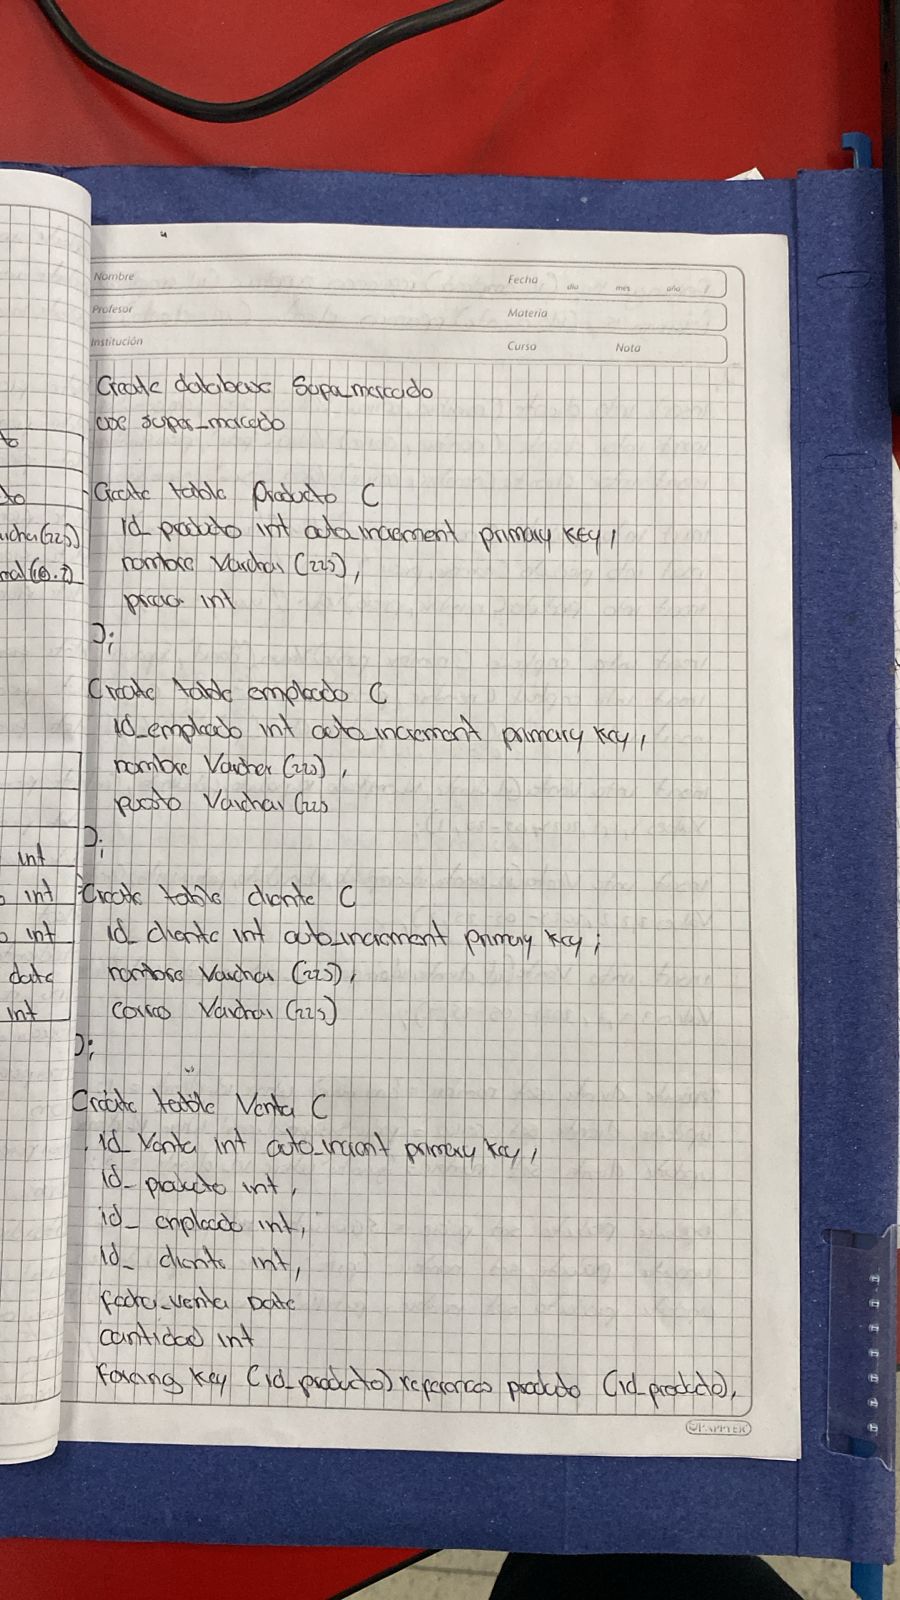 Nombre
Fecha
dia mes año
Profesor
Materia
Institución
Curso Nota
Create database Super_mercado
use super_mercado
to
Create table Producto (
to
id_producto int auto_increment primary key,
varchar(225)
nombre Varchar (225),
precio int
);
Create table empleado (
id_empleado int auto_increment primary key,
nombre Varchar (225),
puesto Varchar (225
);
int
int
Create table cliente (
int
id_cliente int auto_increment primary key;
date
nombre Varchar (225),
int
correo Varchar (225)
);
Create table Venta (
id_Venta int primary key,
id_producto int,
id_empleado int,
id_cliente int,
fecha_venta Date
cantidad int
foreing key (id_producto) references producto (id_producto),